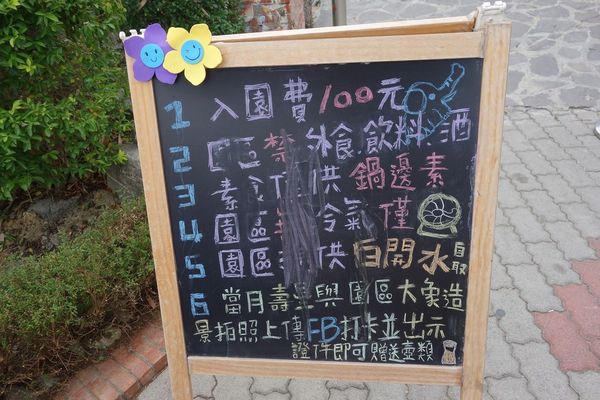 1 入園費100元
2 園區禁外食.飲料.酒
3 素食僅供鍋邊素
4 園區無冷氣僅
5 園區只供白開水自取
6 當月壽星與園區大象造
景拍照上傳FB打卡並出示
證件即可贈送壺類